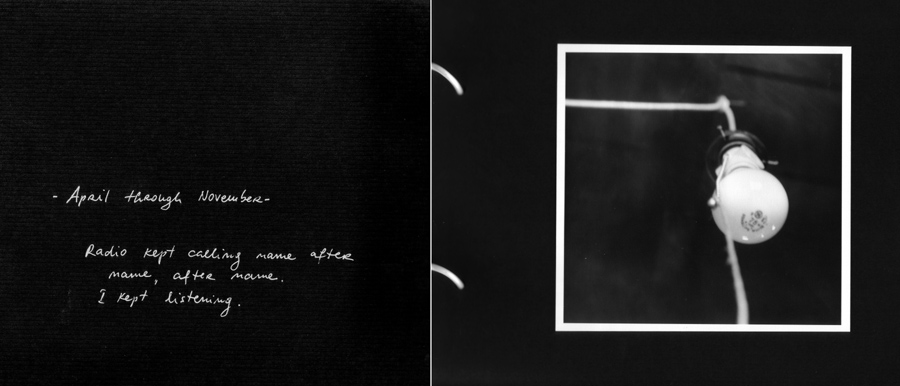 - April through November-
Radio kept calling name after
name, after name.
I kept listening.